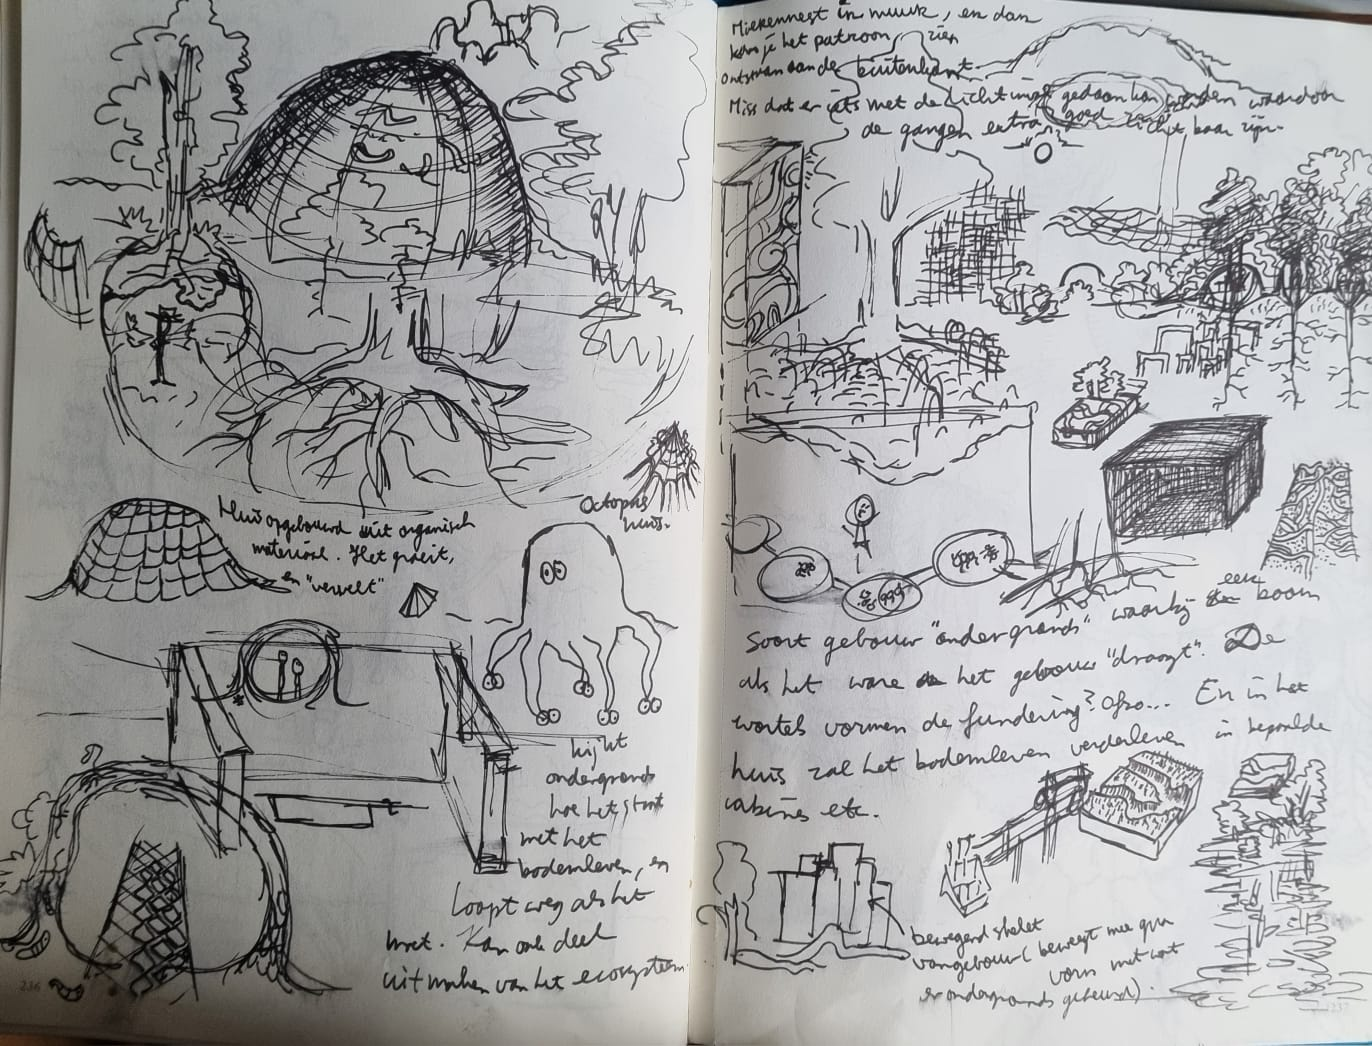 Huis opgebouwd uit organisch
materiaal. Het groeit,
en "verwelt"
Octopus
huis.
kijkt
ondergronds
hoe het staat
met het
bodemleven, en
loopt weg als het
moet. Kan ook deel
uitmaken van het ecosysteem
236
Mierennest in muur, en dan
kan je het patroon zien
ontstaan aan de buitenkant.
Miss dat er iets met de lichting gedaan kan worden waardoor
de gangen extra goed zichtbaar zijn.
Soort gebouw "ondergronds" waarbij een boom
als het ware het gebouw "draagt". De
wortels vormen de fundering? Ofzo... En in het
huis zal het bodemleven verderleven in bepaalde
cabines etc.
bewegend skelet
van gebouw (beweegt mee qua
vorm met wat
er ondergronds gebeurd).
237